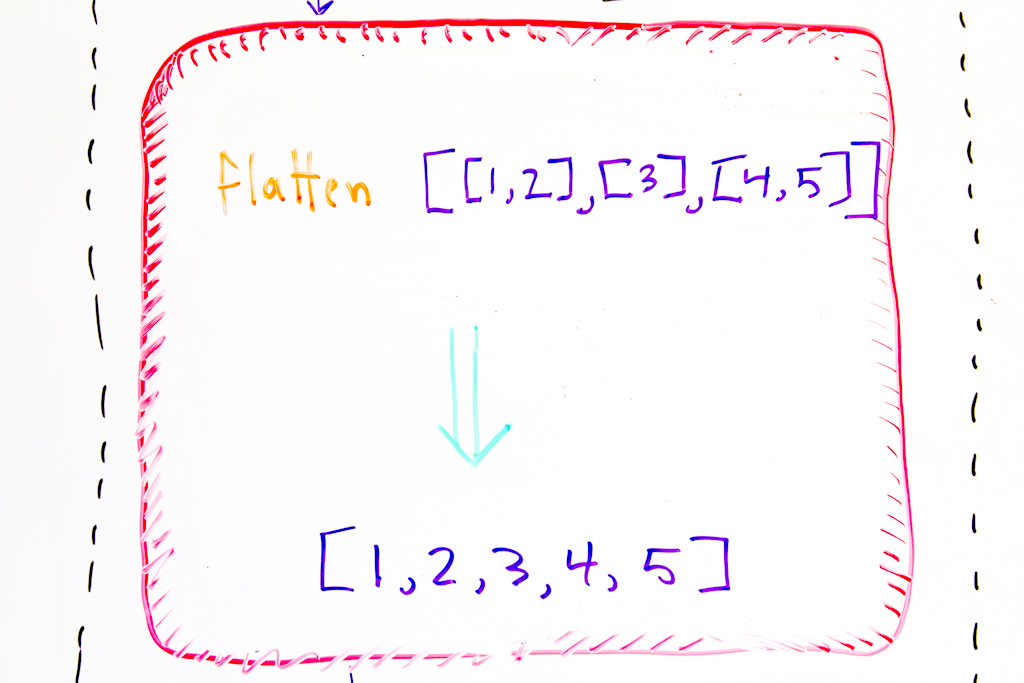 flatten [[1,2],[3],[4,5]]
[1,2,3,4,5]